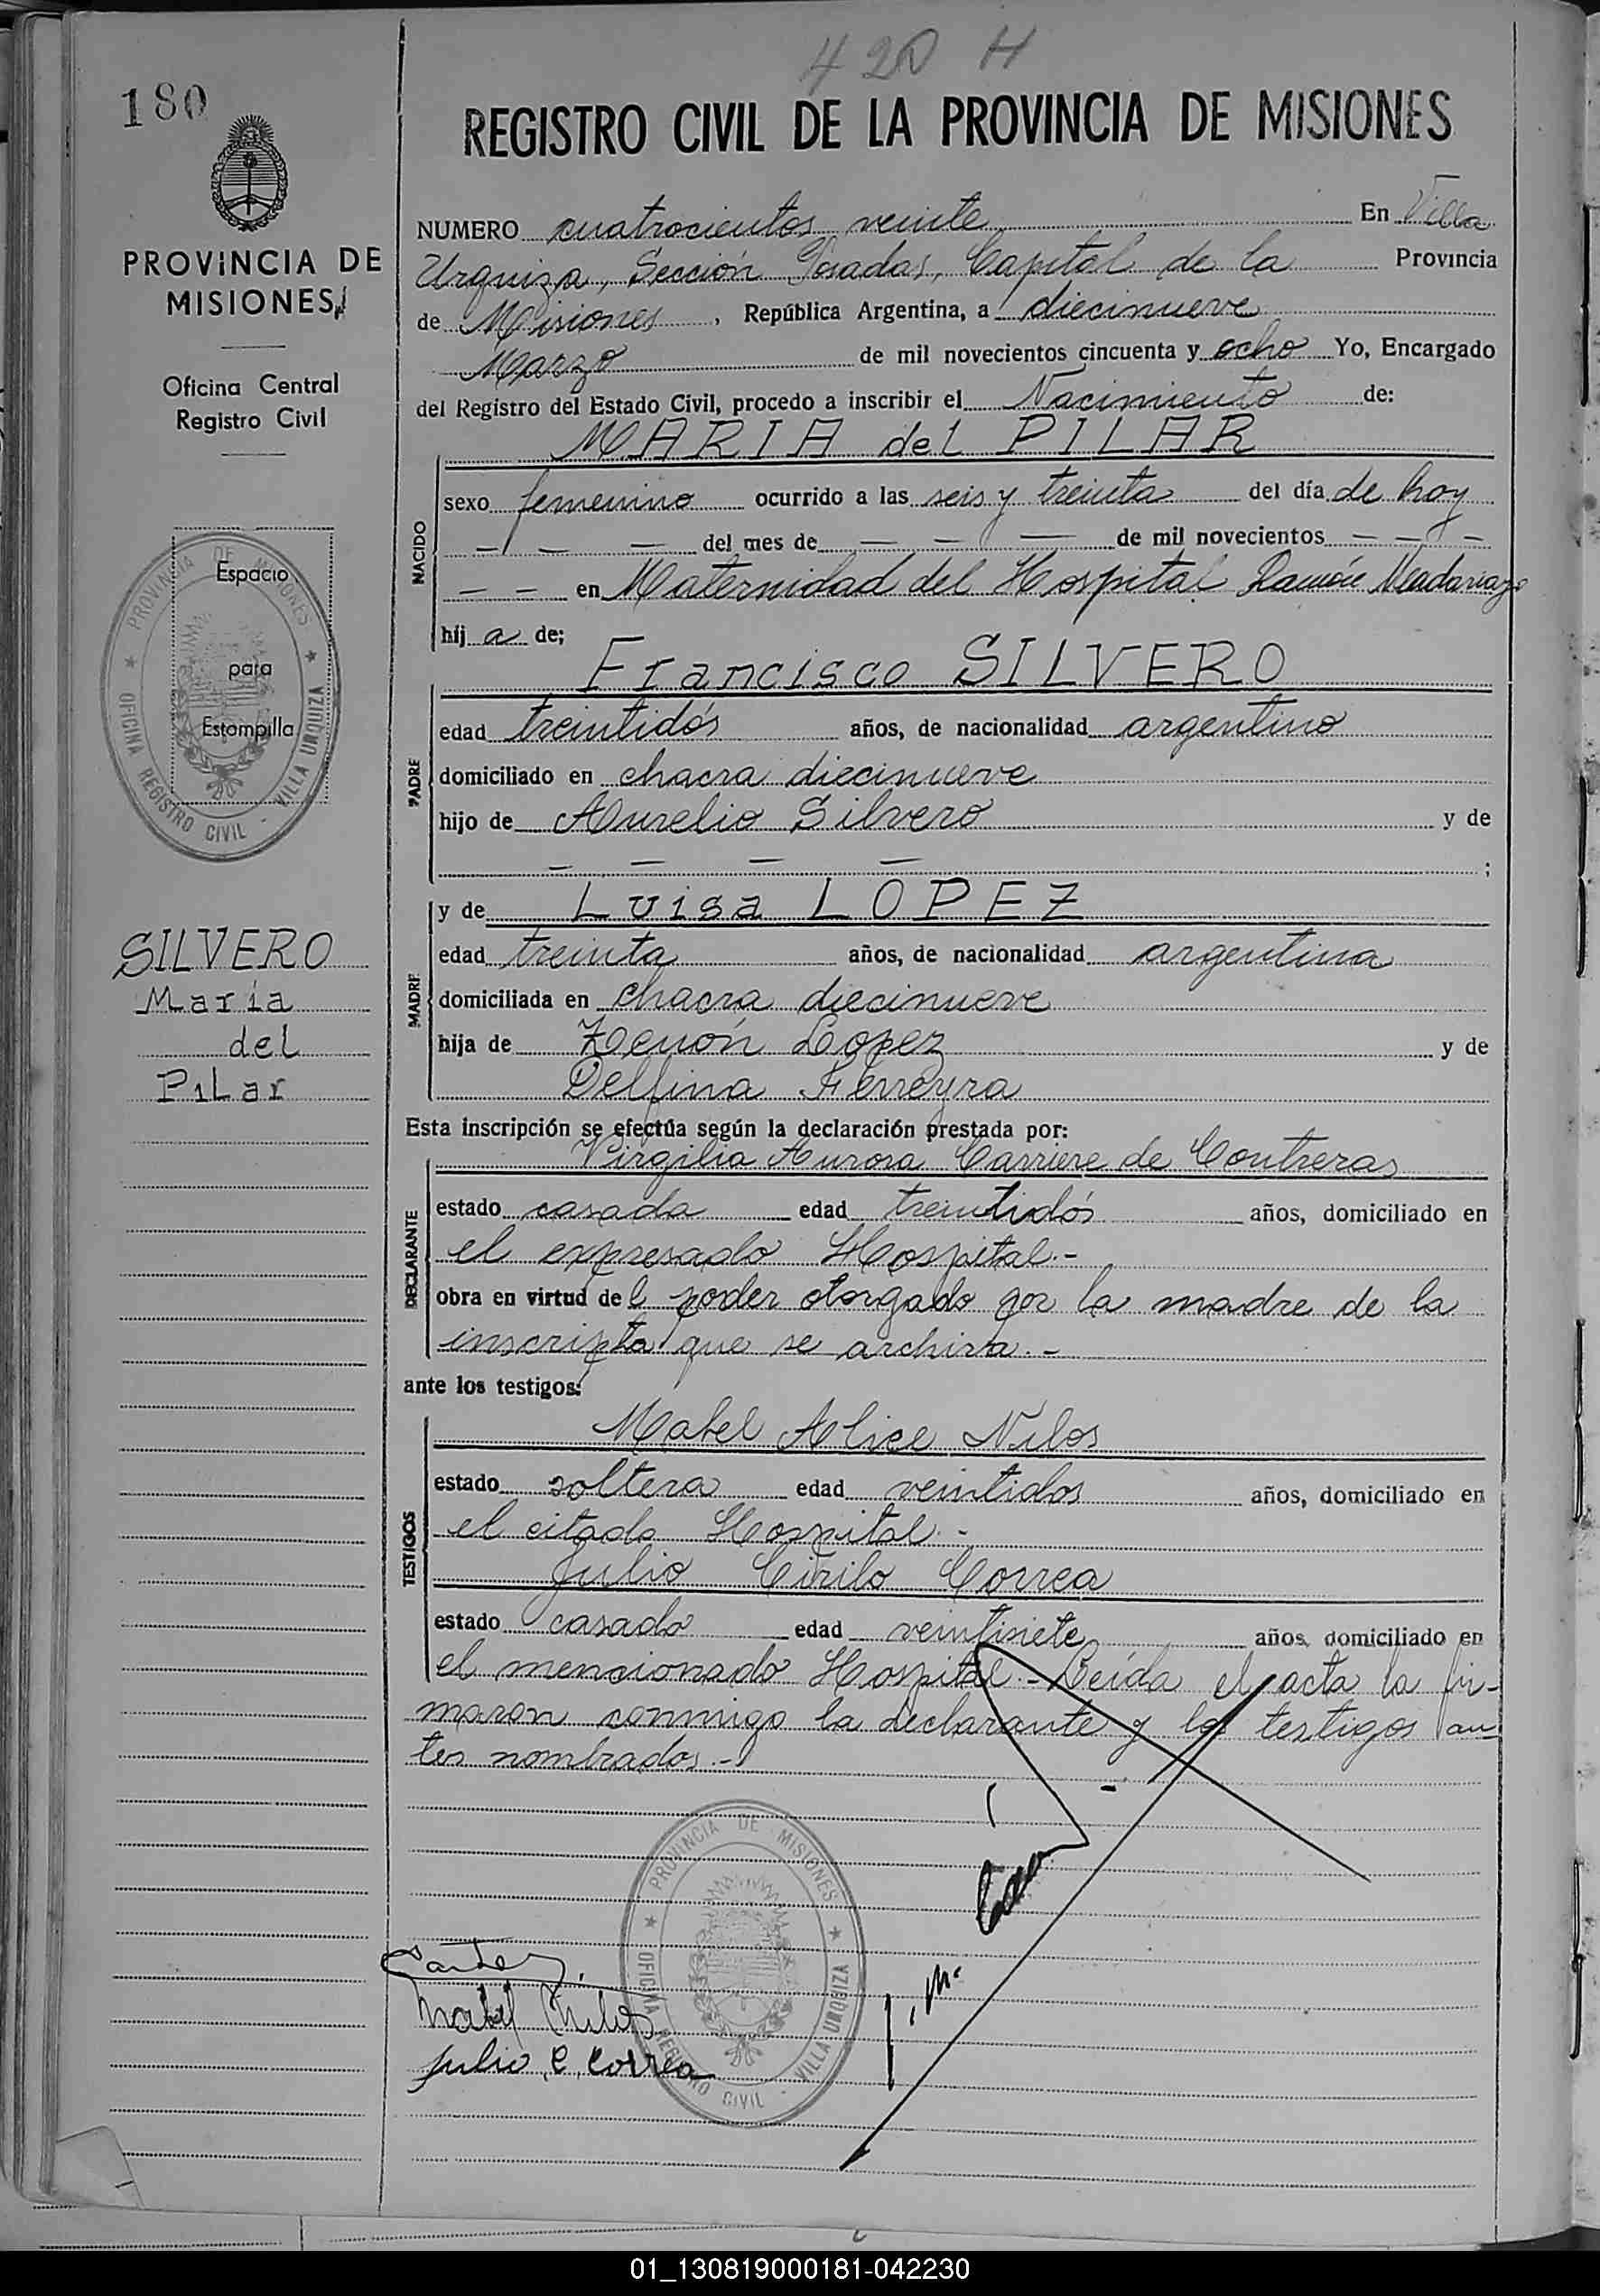 420 H
180
REGISTRO CIVIL DE LA PROVINCIA DE MISIONES
PROVINCIA DE
MISIONES
Oficina Central
Registro Civil
Espacio
para
Estampilla
PROVINCIA DE MISIONES
OFICINA REGISTRO CIVIL - VILLA URQUIZA
SILVERO
María
del
PiLar
NUMERO cuatrocientos veinte En Villa
Urquiza, Sección Posadas, Capital de la Provincia
de Misiones, República Argentina, a diecinueve
Marzo de mil novecientos cincuenta y ocho Yo, Encargado
del Registro del Estado Civil, procedo a inscribir el Nacimiento de:
MARIA del PILAR
NACIDO
sexo femenino ocurrido a las seis y treinta del día de hoy
— — — del mes de — — — de mil novecientos — — —
— — en Maternidad del Hospital Ramón Madariaga
hij a de;
Francisco SILVERO
PADRE
edad treintidós años, de nacionalidad argentino
domiciliado en chacra diecinueve
hijo de Aurelio Silvero y de
— — — — ;
MADRE
y de Luisa LOPEZ
edad treinta años, de nacionalidad argentina
domiciliada en chacra diecinueve
hija de Zenón Lopez y de
Delfina Ferreyra
Esta inscripción se efectúa según la declaración prestada por:
Virgilia Aurora Carriere de Contreras
DECLARANTE
estado casada edad treintidós años, domiciliado en
el expresado Hospital.-
obra en virtud del poder otorgado por la madre de la
inscripta que se archiva.-
ante los testigos:
Mabel Alice Nilos
TESTIGOS
estado soltera edad veintidos años, domiciliado en
el citado Hospital.-
Julio Cirilo Correa
estado casado edad veintisiete años, domiciliado en
el mencionado Hospital.- Leída el acta la fir-
maron conmigo la declarante y los testigos an-
tes nombrados.-
PROVINCIA DE MISIONES
OFICINA REGISTRO CIVIL - VILLA URQUIZA
Mabel Nilos
Julio C. Correa
01_130819000181-042230